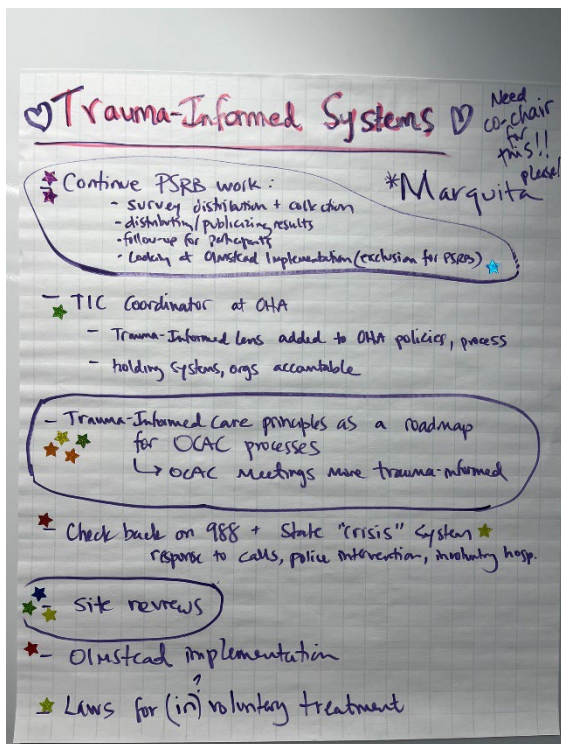 ♡ Trauma-Informed Systems ♡
Need
co-chair
for
this!!
please!
*Marquita
- Continue PSRB work:
- survey distribution + collection
- distributing/publicizing results
- follow-up for participants
- Looking at Olmstead Implementation (exclusion for PSRB)
- TIC Coordinator at OHA
- Trauma-Informed lens added to OHA policies, process
- holding systems, orgs accountable
- Trauma-Informed Care principles as a roadmap
for OCAC processes
↳ OCAC Meetings more trauma-informed
- Check back on 988 + State "crisis" system
response to calls, police intervention, involuntary hosp.
- site reviews
- Olmstead implementation
?
- Laws for (in)voluntary treatment